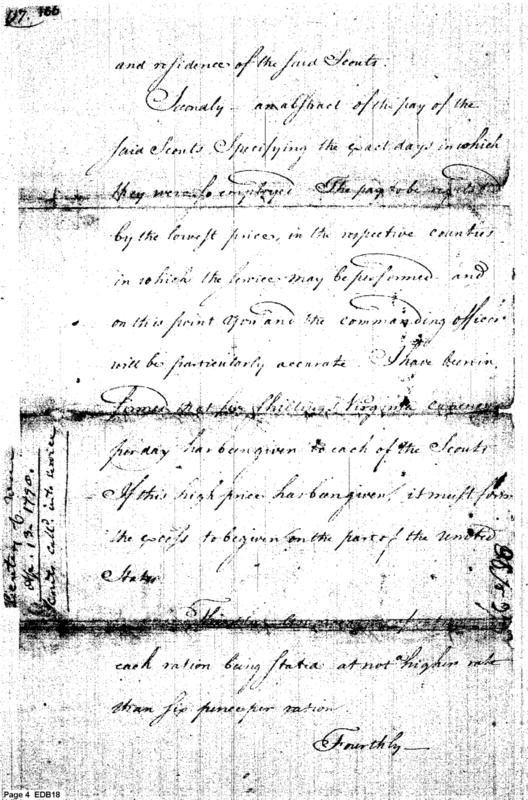 117. 166
and residence of the said Scouts.
Secondly - an abstract of the pay of the
said Scouts Specifying the exact days in which
they were so employed The pay to be regulated
by the lowest price, in the respective counties
in which the service may be performed and
on this point You and the commanding officer
will be particularly accurate. I have been in
formed that five Shillings Virginia currency
per day has been given to each of the Scouts
If this high price has been given, it must form
the excess to be given on the part of the United
States
Thirdly
each ration being stated at not a higher rate
than six pence per ration.
Fourthly—
Secretary of War
Ap. 13. 1790.
Scouts call'd into service
Page 4 EDB18